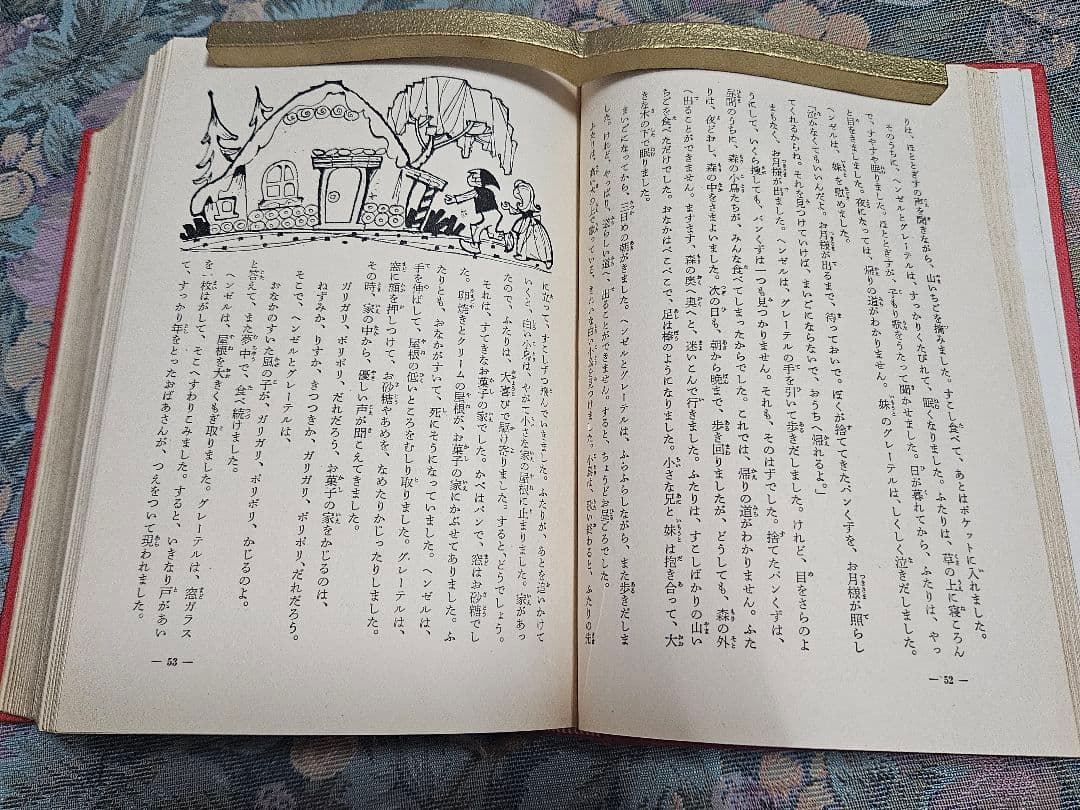 りは、ほととぎすの声を聞きながら、山いちごを摘みました。すこし食べて、あとはポケットに入れました。
そのうちに、ヘンゼルとグレーテルは、すっかりくたびれて、眠くなりました。ふたりは、草の上に寝ころん
で、すやすや眠りました。ほととぎすが、子もり歌をうたって聞かせました。日が暮れてから、ふたりは、やっ
と目をさましました。夜になっては、帰りの道がわかりません。妹のグレーテルは、しくしく泣きだしました。
ヘンゼルは、妹を慰めました。
「泣かなくてもいいんだよ。お月様が出るまで、待っておいで。ぼくが捨ててきたパンくずを、お月様が照らし
てくれるからね。それを見つけていけば、まいごにならないで、おうちへ帰れるよ。」
まもなく、お月様が出ました。ヘンゼルは、グレーテルの手を引いて歩きだしました。けれど、目をさらのよ
うにして、いくら捜しても、パンくずは一つも見つかりません。それも、そのはずでした。捨てたパンくずは、
昼間のうちに、森の小鳥たちが、みんな食べてしまったからでした。これでは、帰りの道がわかりません。ふた
りは、夜どおし、森の中をさまよいました。次の日も、朝から晩まで、歩き回りましたが、どうしても、森の外
へ出ることができません。ますます、森の奥へ奥へと、迷いこんで行きました。ふたりは、すこしばかりの山い
ちごを食べただけでした。おなかはぺこぺこで、足は棒のようになりました。小さな兄と妹は抱き合って、大
きな木の下で眠りました。
まいごになってから、三日めの朝がきました。ヘンゼルとグレーテルは、ふらふらしながら、また歩きだしま
した。けれど、やっぱり、森らしい道へ、出ることができません。すると、ちょうどお昼ごろでした。
ふたりは、
— 52 —
に立って、すこしずつ飛んでいきました。ふたりが、あとを追いかけて
いくと、白い小鳥は、やがて小さな家の屋根に止まりました。家があっ
たので、ふたりは、大喜びで駆け寄りました。すると、どうでしょう。
それは、すてきなお菓子の家でした。かべはパンで、窓はお砂糖でし
た。卵焼きとクリームの屋根が、お菓子の家にかぶせてありました。ふ
たりとも、おなかがすいて、死にそうになっていました。ヘンゼルは、
手を伸ばして、屋根の低いところをむしり取りました。グレーテルは、
窓に顔を押しつけて、お砂糖やあめを、なめたりかじったりしました。
その時、家の中から、優しい声が聞こえてきました。
ガリガリ、ポリポリ、だれだろう、お菓子の家をかじるのは、
ねずみか、りすか、きつつきか、ガリガリ、ポリポリ、だれだろう。
そこで、ヘンゼルとグレーテルは、
おなかのすいた風の子が、ガリガリ、ポリポリ、かじるのよ。
と答えて、また夢中で、食べ続けました。
ヘンゼルは、屋根を大きくもぎ取りました。グレーテルは、窓ガラス
を一枚はがして、そこへすわりこみました。すると、いきなり戸があい
て、すっかり年をとったおばあさんが、つえをついて現われました。
— 53 —